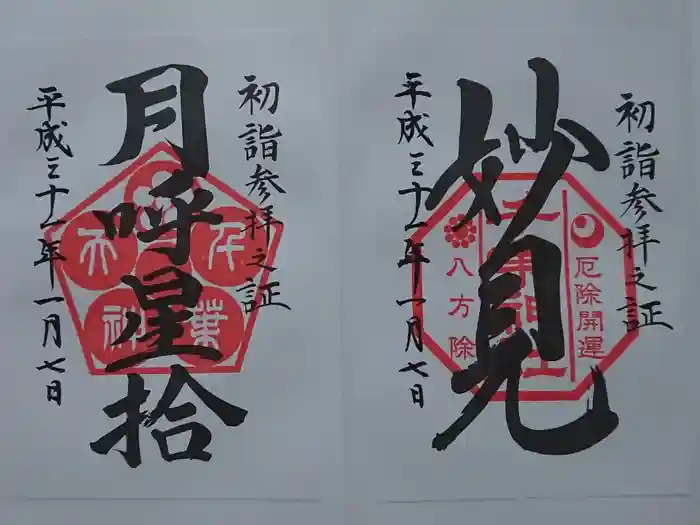 初詣参拝之証
妙見
平成三十一年一月七日
厄除開運
八方除
初詣参拝之証
月呼星拾
平成三十一年一月七日
千葉
神